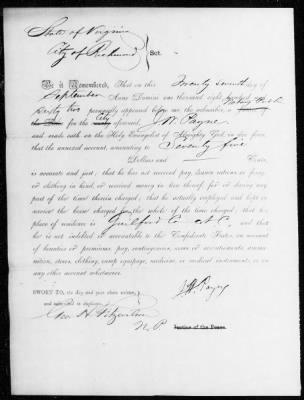 State of Virginia
City of Richmond } Sct.
Be it Remembered, That on this Twenty seventh day of
September Anno Domini one thousand eight hundred and
sixty two personally appeared before me the subscriber, a Notary Public
for the City aforesaid, W. Payne
and made oath on the Holy Evangelist of Almighty God, in due form,
that the annexed account, amounting to Seventy five
Dollars and Cents,
is accurate and just; that he has not received pay, drawn rations or forage,
or clothing in kind, or received money in lieu thereof, for or during any
part of the time therein charged; that he actually employed and kept in
service the horse charged for the whole of the time charged; that his
place of residence is Guilford C. N. C., and that
he is not indebted or accountable to the Confederate States, on account
of bounties or premiums, pay, contingencies, arms or accoutrements, ammu-
nition, stores, clothing, camp equipage, medicine, or medical instruments, or on
any other account whatsoever.
W. Payne
SWORN TO, the day and year above written,
and subscribed in duplicate,
Geo. H.
N. P. Justice of the Peace.